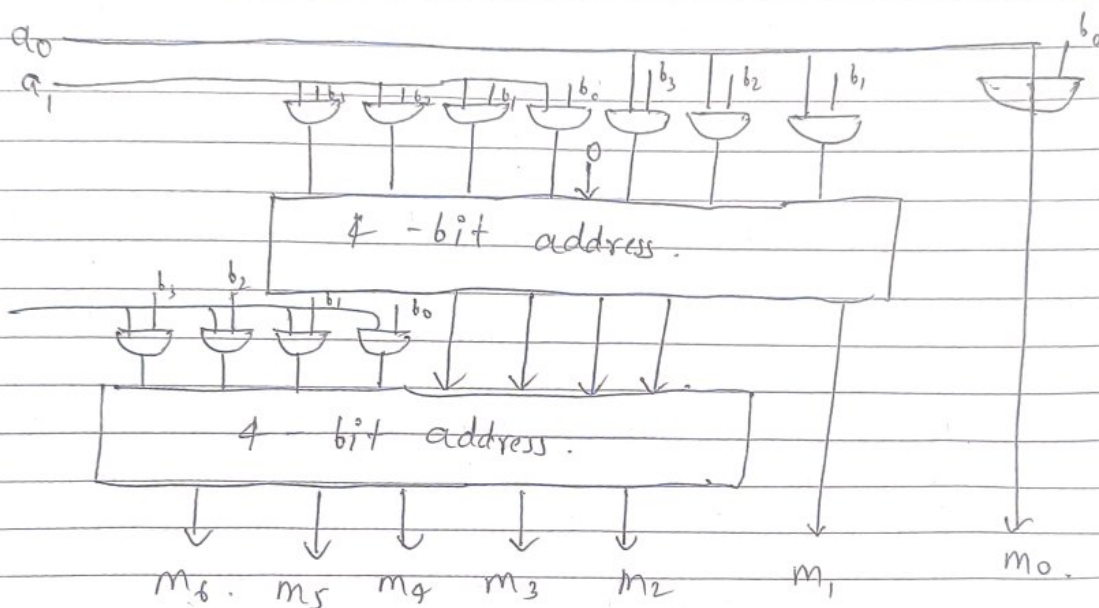 a0 b0
a1 b3 b2 b1 b0 b3 b2 b1
0
4 - bit address.
b3 b2 b1 b0
4 - bit address.
m6. m5 m4 m3 m2 m1 m0.